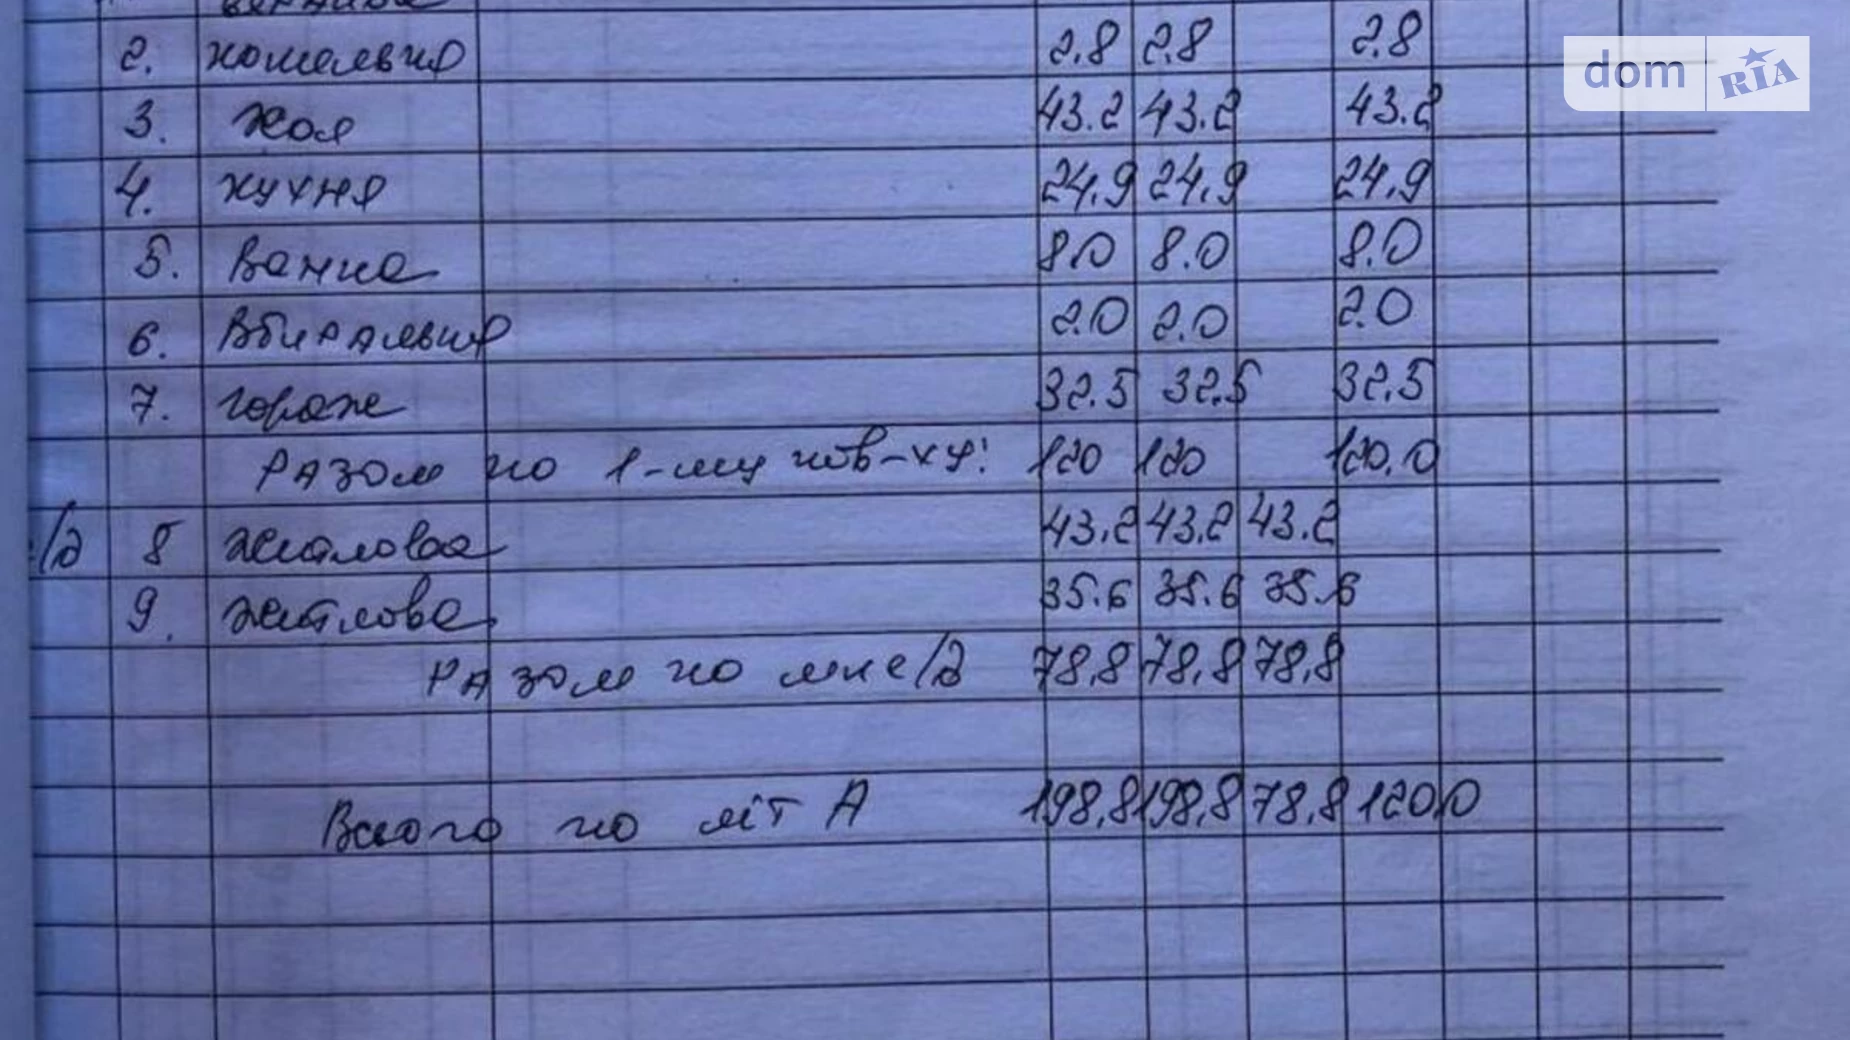 dom RIA
2. 2.8 2.8 2.8
3. хол 43.2 43.2 43.2
4. кухня 24,9 24,9 24,9
5. Ванна 8.0 8.0 8.0
6. Вбиральня 2.0 2.0 2.0
7. гараж 32.5 32.5 32,5
РАЗОМ по 1-му пов-ху: 120 120 120,0
8 житлова 43.2 43.2 43.2
9. житлова 35.6 35.6 35.6
РАЗОМ по м/д 78,8 78,8 78,8
Всього по літ А 198,8 198,8 78,8 120,0